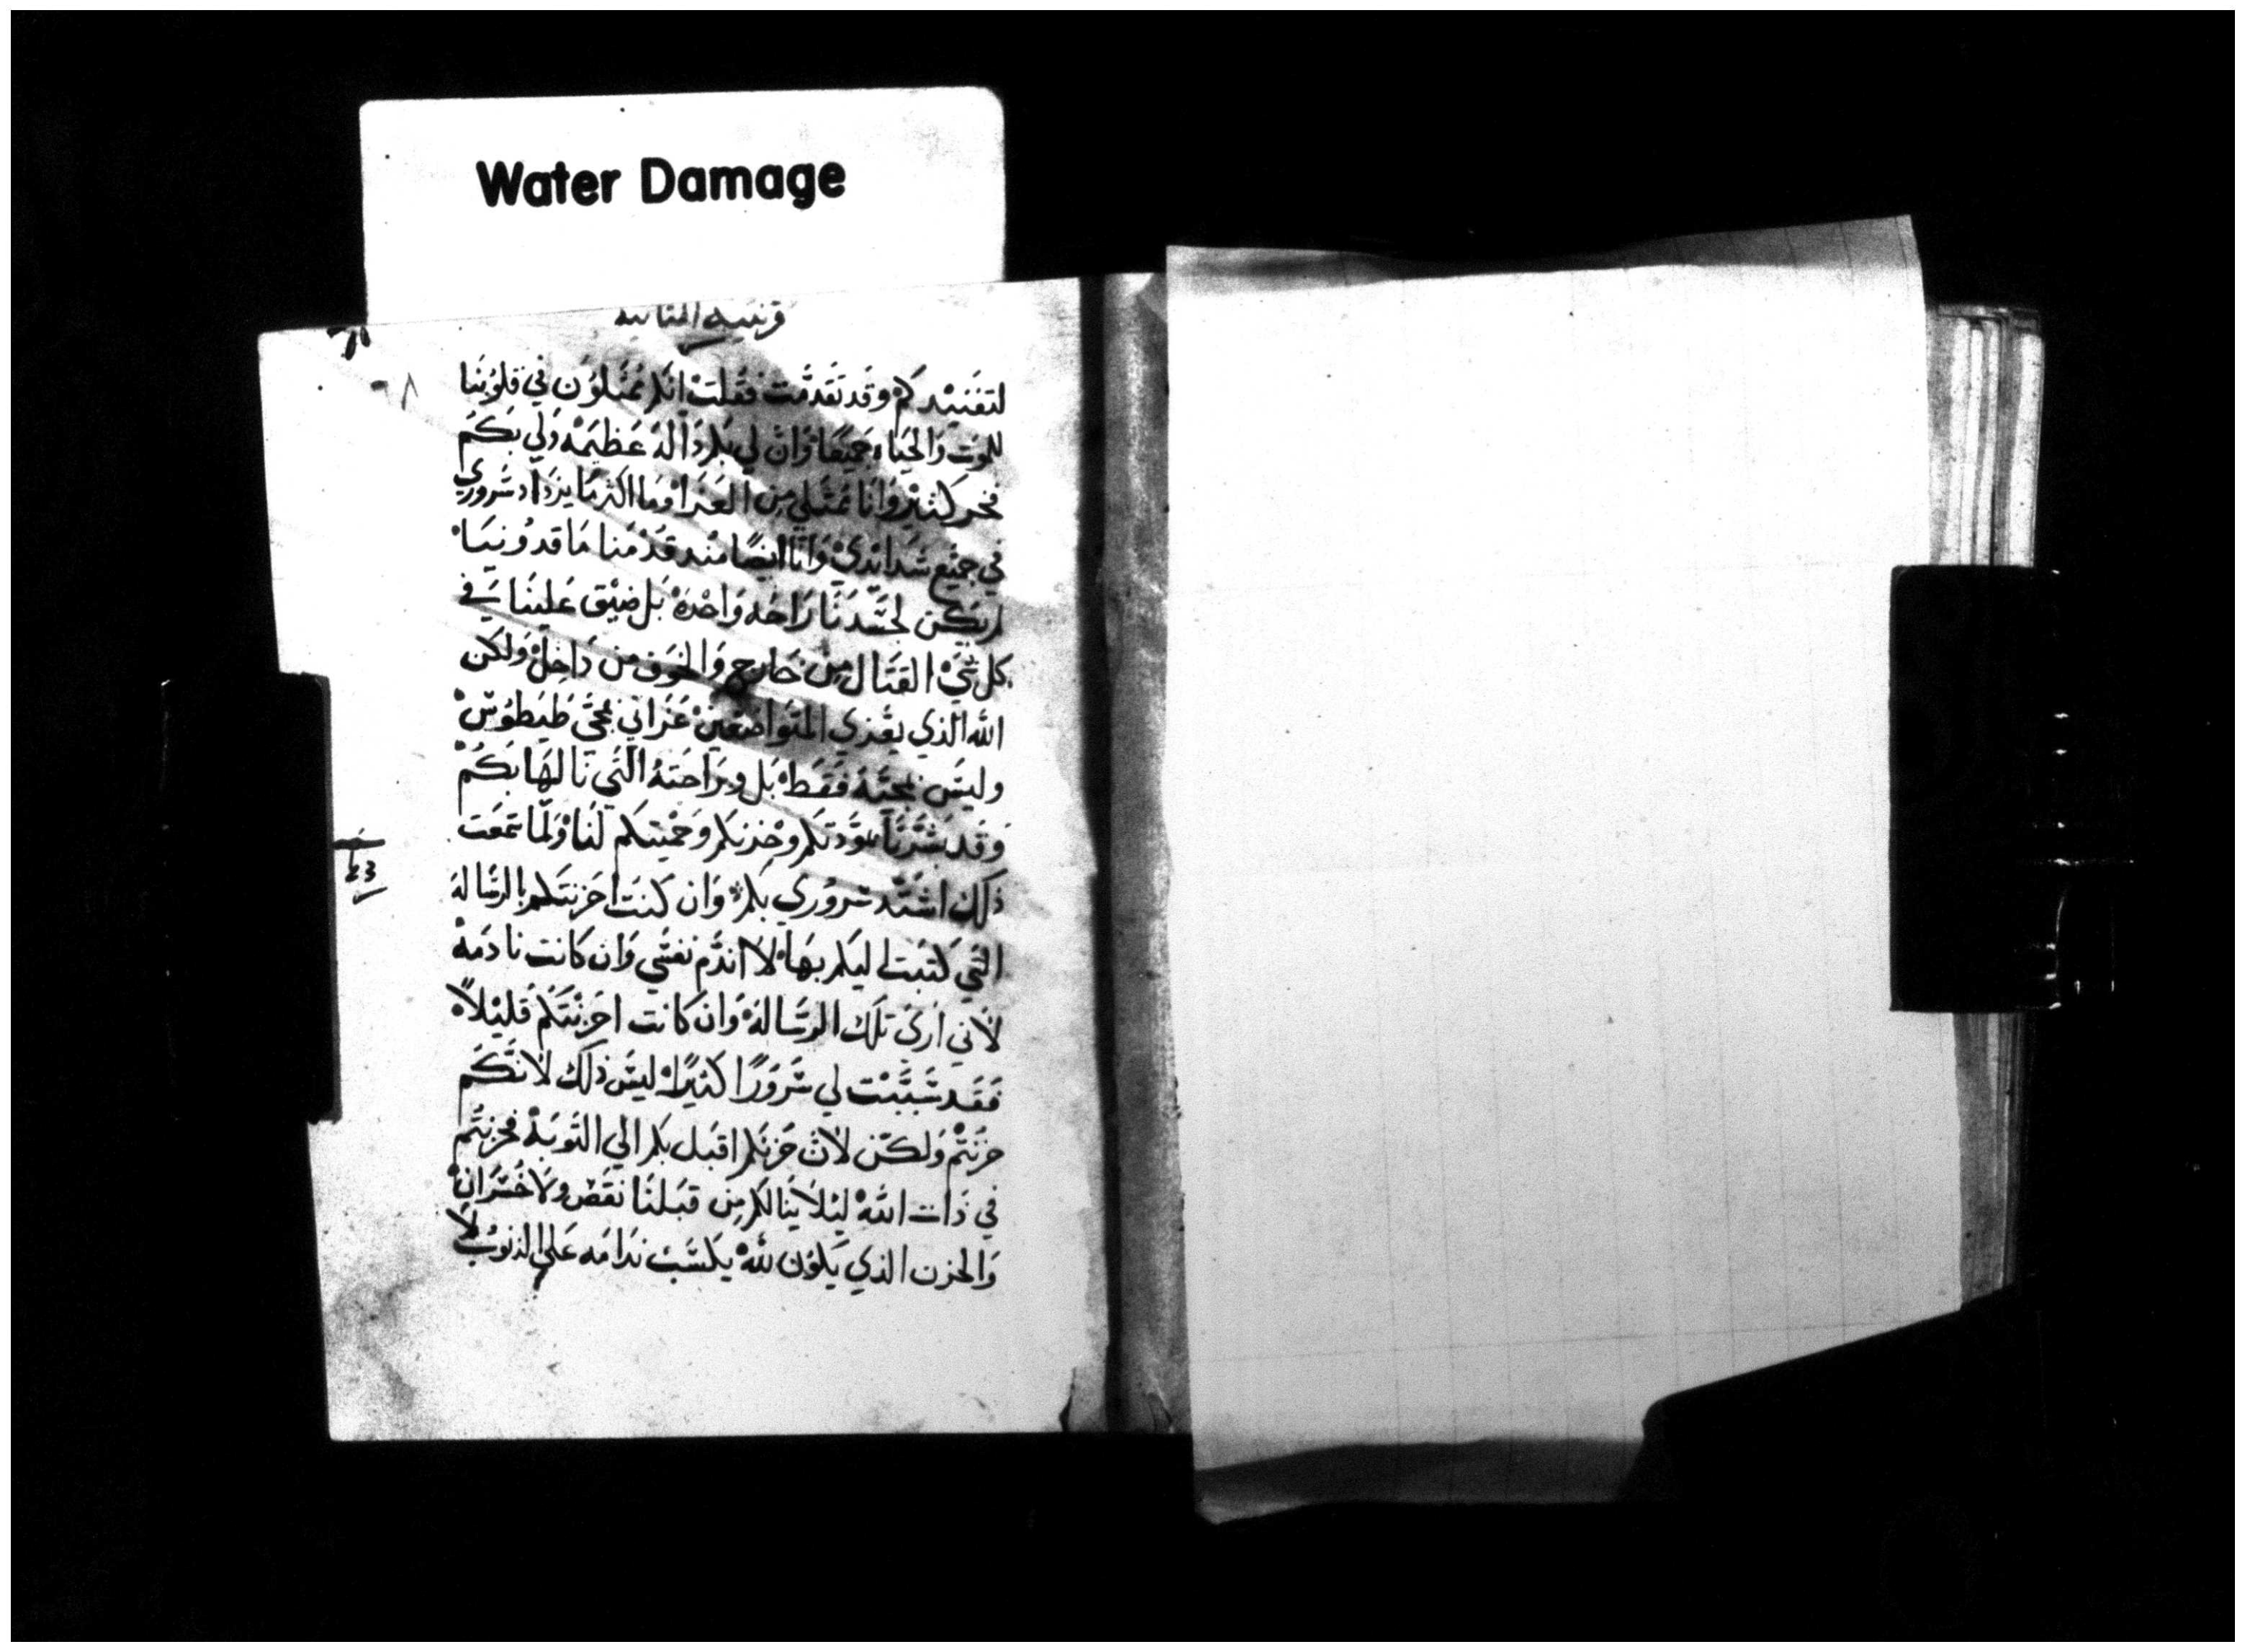 Water Damage
قرنتيه الثانيه
لتفنيدكم وقد تقدمت فقلت انكم ممثلون في قلوبنا
للموت والحياه جميعا وان لي بكم دالة عظيمة ولي بكم
فخر كثير وانا ممتلي من العزا وما اكثر ما يزداد سروري
في جميع شدايدي وانا ايضا منذ قدمنا ماقدونيا
لم يكن لجسدنا راحه واحدة بل ضيق علينا في
كل شي القتال من خارج والخوف من داخل ولكن
الله الذي يعزي المتواضعين عزاني بمجي طيطوس
وليس بمجيه فقط بل وبراحته التي نالها بكم
وقد بشرنا بمودتكم وحزنكم وحميتكم لنا ولما سمعت
ذلك اشتد سروري بكم وان كنت احزنتكم بالرسالة
التي كتبت اليكم بها لا اندم نفسي وان كانت نادمة
لاني اري تلك الرسالة وان كانت احزنتكم قليلا
فقد سببت لي سرورا كثيرا ليس ذلك لانكم
حزنتم ولكن لان حزنكم اقبل بكم الي التوبة فحزنتم
في ذات الله ليلا ينالكم من قبلنا نقص ولا خسران
والحزن الذي يكون لله يكسب ندامه علي الذنوب لا